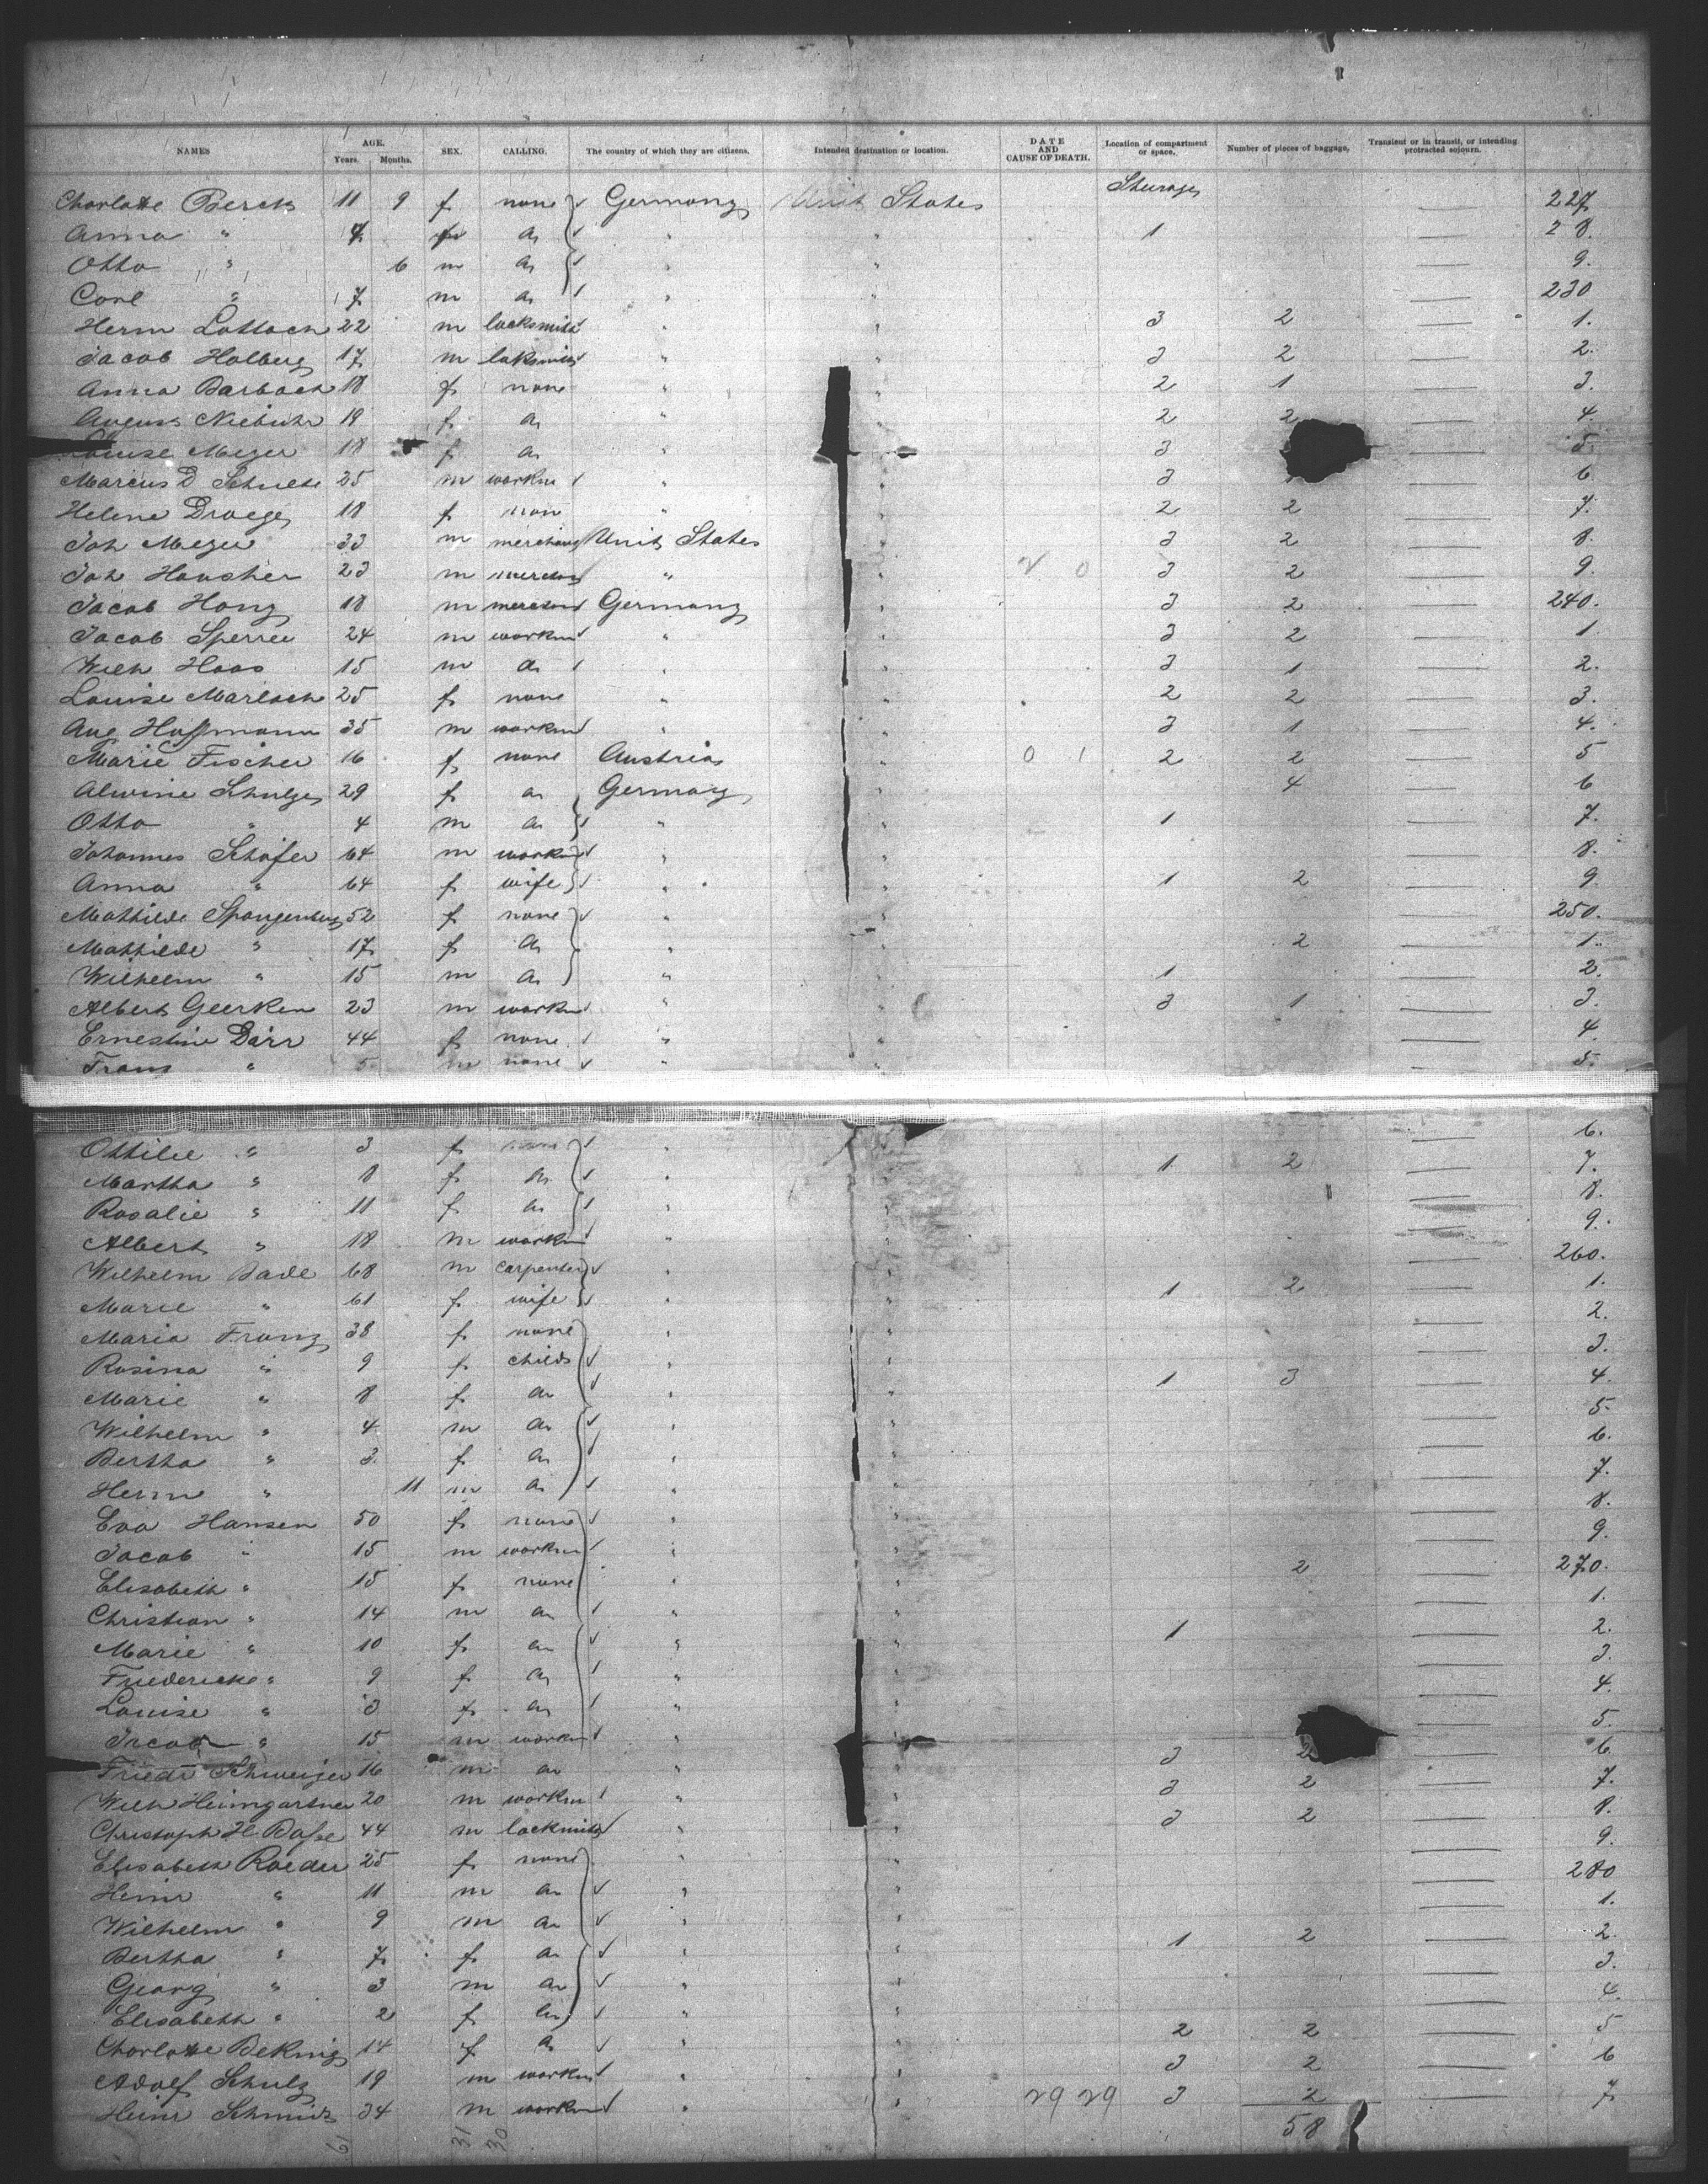 NAMES AGE. Years. Months. SEX. CALLING. The country of which they are citizens. Intended destination or location. DATE AND CAUSE OF DEATH. Location of compartment or space. Number of pieces of baggage. Transient or in transit, or intending protracted sojourn.
Charlotte Berck 11 9 f none Germany Unit States 227
Anna " 4 f do " " 1 28.
Otto " 6 m do " " 9.
Carl " 7 m do " " 230
Herm 22 m locksmith " " 3 2 — 1.
Jacob Holberg 17 m loksmith " " 3 2 — 2.
Anna Barbach 18 f none " " 2 1 — 3.
August Niebuhr 19 f do " " 2 2 — 4.
Louise Meyer 18 f do " " 3 — 5.
Marcus D Schulte 25 m workm " " 3 — 6
Helene Droege 18 f non " " 2 2 — 7.
Joh Meyer 33 m merchant Unit States " 3 2 — 8.
Joh 23 m " " 2 0 3 2 — 9.
Jacob Hong 18 m Germany " 3 2 — 240.
Jacob Sperre 24 m workm " " 3 2 — 1
Wilh Haas 15 m do " " 3 1 — 2.
Louise Marlach 25 f none " " 2 2 — 3.
Aug Hoffmann 35 m workm " " 3 1 — 4.
Marie Fischer 16 f none Austria " 0 1 2 2 — 5
Alwine Schulze 29 f do Germany " 4 — 6
Otto " 4 m do " " 1 — 7.
Johannes Schäfer 64 m workm " " — 8.
Anna " 64 f wife " " 1 2 — 9
Mathilde Spangenberg 52 f none " " — 250.
Mathilde " 17 f do " " 2 — 1.
Wilhelm " 15 m do " " 1 — 2.
Albert Geerken 23 m workm " " 3 1 — 3.
Ernestine Dörr 44 f none " " — 4
Franz " 5 m none " " — 5.
Ottilie " 3 f none " " — 6.
Martha " 8 f do " " 1 2 — 7.
Rosalie " 11 f do " " — 8.
Albert " 18 m workm " " — 9.
Wilhelm Bade 68 m carpenter " " — 260.
Marie " 61 f wife " " 1 2 — 1.
Maria Franz 38 f none " " — 2.
Rosina " 9 f child " " — 3.
Marie " 8 f do " " 1 3 — 4.
Wilhelm " 4 m do " " — 5.
Bertha " 3 f do " " — 6.
Herm " 11 m do " " — 7.
Eva Hansen 50 f none " " — 8.
Jacob " 15 m workm " " — 9.
Elisabeth " 15 f none " " 2 — 270.
Christian " 14 m do " " — 1.
Marie " 10 f do " " 1 — 2.
Friedericke " 9 f do " " — 3.
Louise " 3 f do " " — 4.
Jacob " 15 m workm " " — 5.
Friedr Schweizer 16 m do " " 3 2 — 6
Wilh Heimgartner 20 m workm " " 3 2 — 7.
Christoph H Basse 44 m lockmith " " 3 2 — 8.
Elisabeth Roeder 25 f none " " — 9.
Heinr " 11 m do " " — 280
Wilhelm " 9 m do " " — 1.
Bertha " 7 f do " " 1 2 — 2.
Georg " 3 m do " " — 3.
Elisabeth " 2 f do " " — 4.
Charlotte Beking 14 f do " " 2 2 — 5
Adolf Schulz 19 m workm " " 3 2 — 6
Heinr Schmidt 34 m workm " " 29 29 3 2 — 7
61 31 30 58